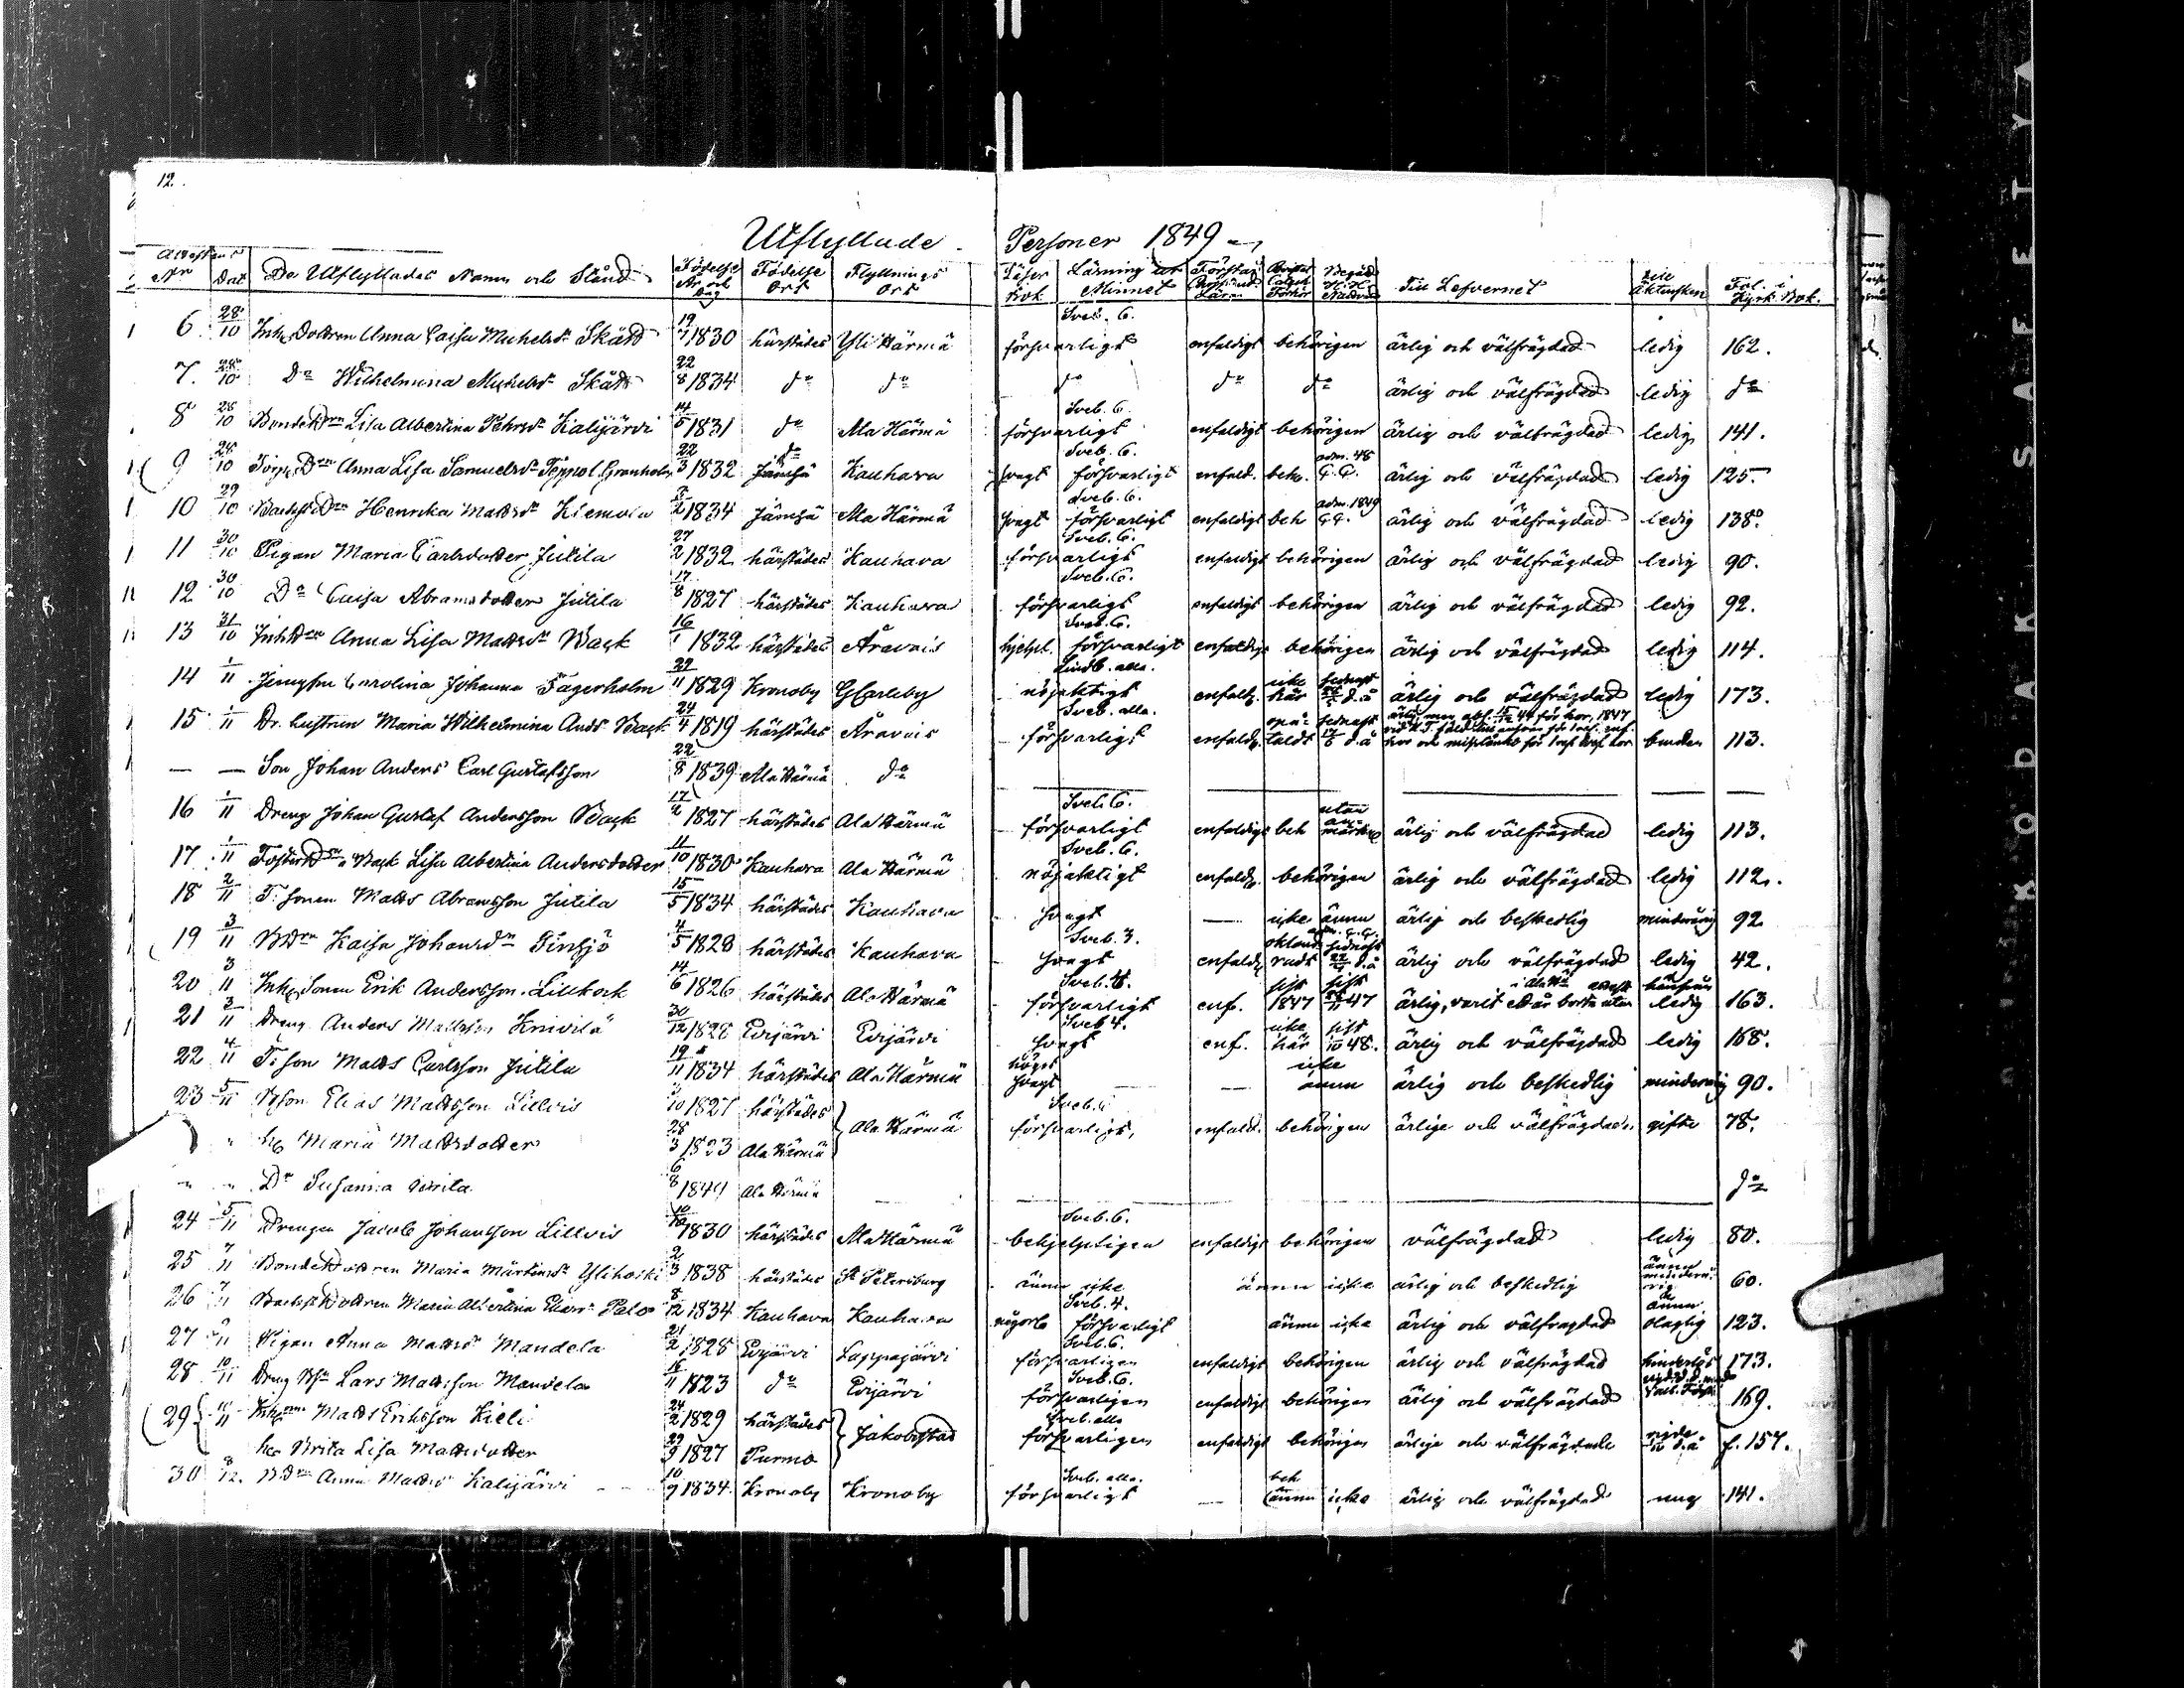 12.
Utflyttade Personer 1849
Attestens
Nr Dat De Utflyttades Namn och Stånd Födelse År och Dag Födelse Ort Flyttnings Ort Läser Bok Läsning ur Minnet Förstår Lära Begått H. H. Nattvard Till Lefvernet Till Äktenskap Fol. i Kyrk. Bok.
6. 28/10 Inh. Dottren Anna Caisa Michelsdr Skäfd 19/7 1830 härstädes Ylihärmä Sveb. 6. försvarligt enfaldigt behörigen ärlig och välfrägdad ledig 162.
7. 28/10 Do Wilhelmina Michelsdr Skäfd 22/8 1834 do do do do do ärlig och välfrägdad ledig do
8 28/10 Bonde Dren Lisa Albertina Pehrsdr Kalijärvi 14/5 1831 do Ala Härmä Sveb. 6. försvarligt enfaldigt behörigen ärlig och välfrägdad ledig 141.
9 28/10 Torp. Dren Anna Lisa Samuelsdr Teppo l. Granholm 22/3 1832 do Kauhava svagt Sveb. 6. försvarligt enfald. beh. adm. 48 G.G. ärlig och välfrägdad ledig 125.
10 29/10 Backst. Dren Henrika Mattsdr Kiemola 1834 Jämsjä Ala Härmä svagt Sveb. 6. försvarligt enfaldigt beh adm. 1849 G.G. ärlig och välfrägdad ledig 138.
11 30/10 Pigan Maria Carlsdotter Jutila 27/2 1832 härstädes Kauhava Sveb. 6. försvarligt enfaldigt behörigen ärlig och välfrägdad ledig 90.
12 30/10 Do Caisa Abramsdotter Jutila 17/8 1827 härstädes Kauhava Sveb. 6. försvarligt enfaldigt behörigen ärlig och välfrägdad ledig 92.
13 31/10 Inh Dren Anna Lisa Mattsdr Back 16/1 1832 härstädes Åravais hjelpl. Sveb. 6. försvarligt enfaldigt behörigen ärlig och välfrägdad ledig 114.
14 1/11 Jungfru Carolina Johanna Fagerholm 29/11 1829 Kronoby GCarleby Lindb. alla. nöjaktigt enfaldg. icke här sednast d.å ärlig och välfrägdad ledig 173.
15 1/11 Dr. hustrun Maria Wilhelmina Andsdr Back 24/4 1819 härstädes Åravais Sveb. alla. försvarligt enfaldg. sednast d.å bunden 113.
— — Son Johan Anders Carl Gustafsson 22/8 1839 Ala Härmä do
16 1/11 Dreng Johan Gustaf Andersson Back 17/2 1827 härstädes Ala Härmä Sveb. 6. försvarligt enfaldigt beh utan anmärkn. ärlig och välfrägdad ledig 113.
17. 1/11 Foster Dren Back Lisa Albertina Andersdotter 11/10 1830 Kauhava Ala Härmä Sveb. 6. nöjaktigt enfaldg. behörigen ärlig och välfrägdad ledig 112.
18 2/11 T. Sonen Matts Abramsson Jutila 15/5 1834 härstädes Kauhava svagt — icke ännu ärlig och beskedlig minderårig 92
19 3/11 B Dren Kaisa Johansdr Finsjö 4/5 1828 härstädes Kauhava Sveb. 3. svagt enfaldg. oklandradt sednast d.å ärlig och välfrägdad ledig 42.
20 3/11 Inh. Sonen Erik Andersson Lillkock 14/6 1826 härstädes Ala Härmä Sveb. 4. försvarligt enf. sist 1847 sist 47 ärlig, varit borta utan ledig 163.
21 3/11 Dreng Anders Mattsson Knivilä 30/12 1828 Evijärvi Evijärvi Sveb 4. svagt enf. icke här sist 48. ärlig och välfrägdad ledig 168.
22 4/11 T. son Matts Carlsson Jutila 19/11 1834 härstädes Ala Härmä något svagt — — icke ännu ärlig och beskedlig minderårig 90.
23 5/11 Bson Elias Mattsson Lillvis 1827 härstädes Ala Härmä Sveb. 6 försvarligt, enfald. behörigen ärlige och välfrägdade gifte 78.
" hu Maria Mattsdotter 28/3 1823 Ala Härmä
" " Dr Susanna Brita 6/8 1849 Ala Härmä do
24 5/11 Drengen Jacob Johansson Lillvis 1830 härstädes Ala Härmä Sveb. 6. behjelpligen enfaldigt behörigen välfrägdad ledig 80.
25 7/11 Bonde Dottren Maria Mårtensdr Ylikoski 2/3 1838 härstädes St Petersburg ännu icke ännu icke ärlig och beskedlig ännu minderårig 60.
26 7/11 Backst Dottren Maria Albertina Eliasdr Palo 8/12 1834 Kauhava Kauhava någorl. Sveb. 4. försvarligt ännu icke ärlig och välfrägdad ännu olaglig 123.
27 9/11 Pigan Anna Mattsdr Mandela 21/2 1828 Evijärvi Lappajärvi Sveb. 6. försvarligen enfaldigt behörigen ärlig och välfrägdad hinderlös 173.
28 10/11 Dreng Lars Mattsson Mandela 18/11 1823 do Evijärvi Sveb. 6. försvarligen enfaldigt behörigen ärlig och välfrägdad 169.
29 10/11 Inh. Matts Eriksson Kieli 24/2 1829 härstädes Jakobstad Sveb. alla försvarligen enfaldigt behörigen ärlige och välfrägdade vigde d.å f. 157.
hu Brita Lisa Mattsdotter 29/9 1827 Purmo
30 3/12. B. Dren Anna Mattsdr Kalijärvi 10/9 1834. Kronoby Kronoby Sveb. alla. försvarligt — beh ännu icke ärlig och välfrägdad ung 141.
KODAK SAFETY